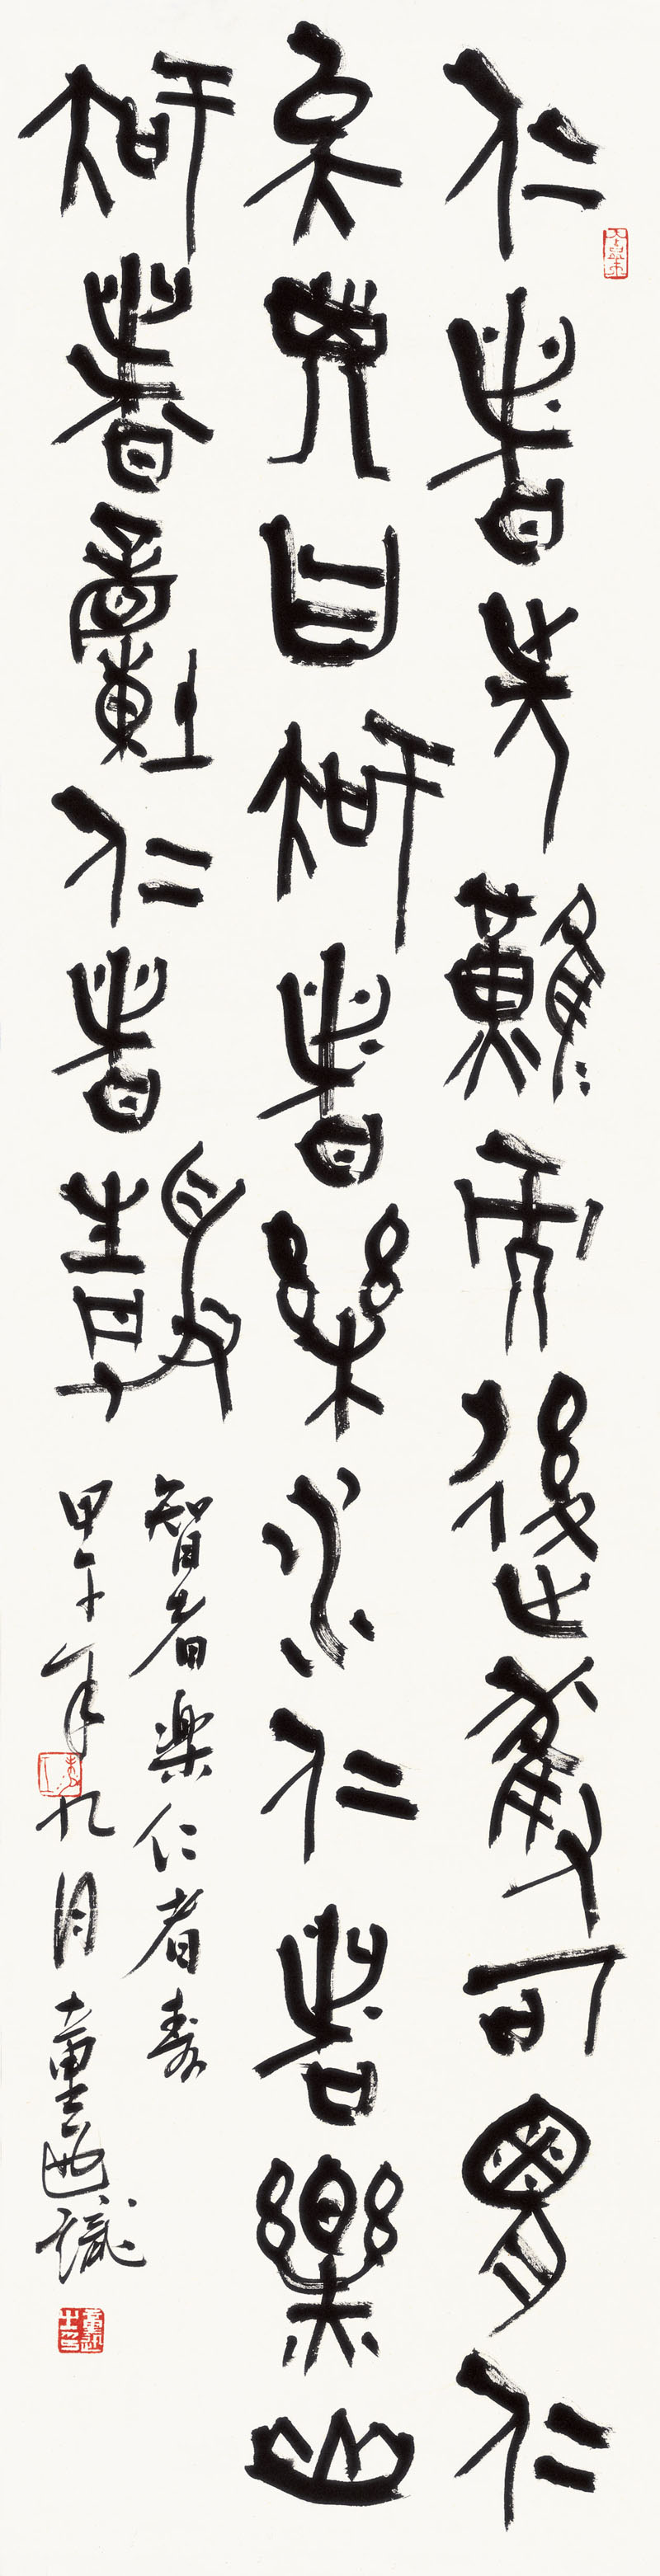 仁者先難而後獲可胃仁
矣子曰智者樂水仁者樂山
智者動仁者靜
智者楽仁者壽
甲午年九月童識